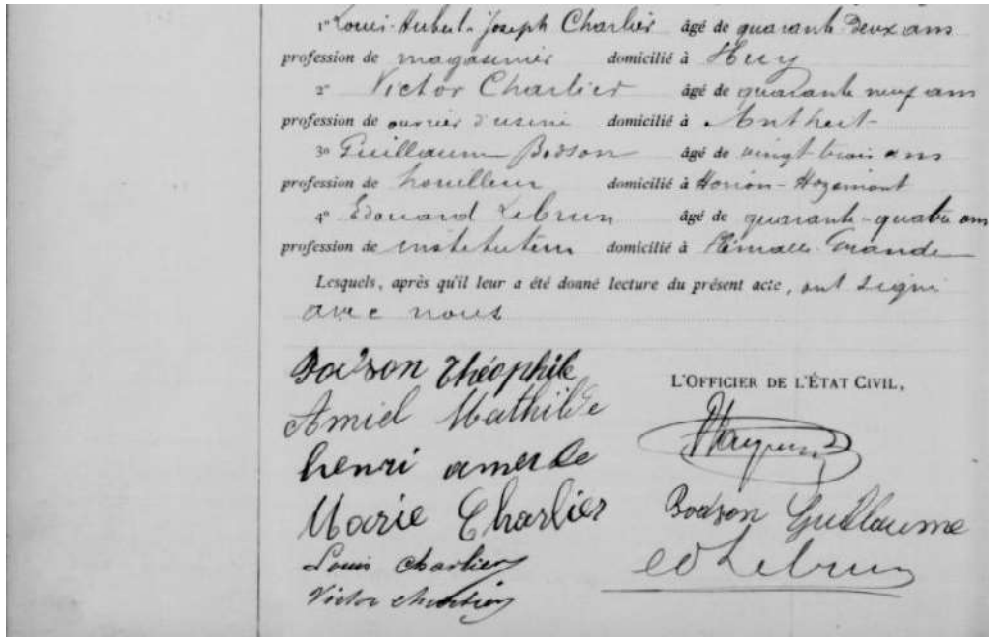 1º Louis-Hubert-Joseph Charlier âgé de quarante-deux ans
profession de magasinier domicilié à Huy
2º Victor Charlier âgé de quarante neuf ans
profession de ouvrier d'usine domicilié à Antheit
3º Guillaume Bodson âgé de vingt trois ans
profession de houilleur domicilié à Horion-Hozemont
4º Edouard Lebrun âgé de quarante-quatre ans
profession de instituteur domicilié à Flémalle-Grande
Lesquels, après qu'il leur a été donné lecture du présent acte, ont signé
avec nous
Bodson Théophile
L'OFFICIER DE L'ÉTAT CIVIL,
Amiel Mathilde
henri
Marie Charlier
Bodson Guillaume
Louis Charlier
ed Lebrun
Victor Charlier